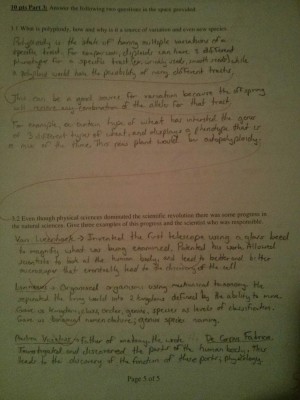 10 pts Part 3: Answer the following two questions in the space provided.
3.1 What is polyploidy, how and why is it a source of variation and even new species
Polyploidy is the state of having multiple variations of a
specific trait. For comparison, diploids can have 3 different
phenotype for a specific trait (ex: while
a polyploid would have the possibility of many different traits.
This can be a good source for variation because the offspring
will any combination of the alleles for that trait.
For example, a certain type of wheat has inherited the genes
of 3 different types of wheat, and displays a phenotype that is
a mix of the three. This new plant would be autopolyploidy.
3.2 Even though physical sciences dominated the scientific revolution there was some progress in
the natural sciences. Give three examples of this progress and the scientist who was responsible.
Van → Invented the first telescope using a glass bead
to magnify what was being examined. Patented his work. Allowed
scientists to look at the human body, and lead to better and better
microscopes that eventually lead to the discovery of the cell.
Organized organisms using taxonomy. He
separated the living world into 2 kingdoms defined by the ability to move.
Gave us kingdom, class, order, genus, species as levels of classification.
Gave us binomial nomenclature; genus species naming.
→ father of anatomy, he wrote De Fabrica.
Investigated and discovered the parts of the human body. This
leads to the discovery of the function of these parts; physiology.
Page 5 of 5